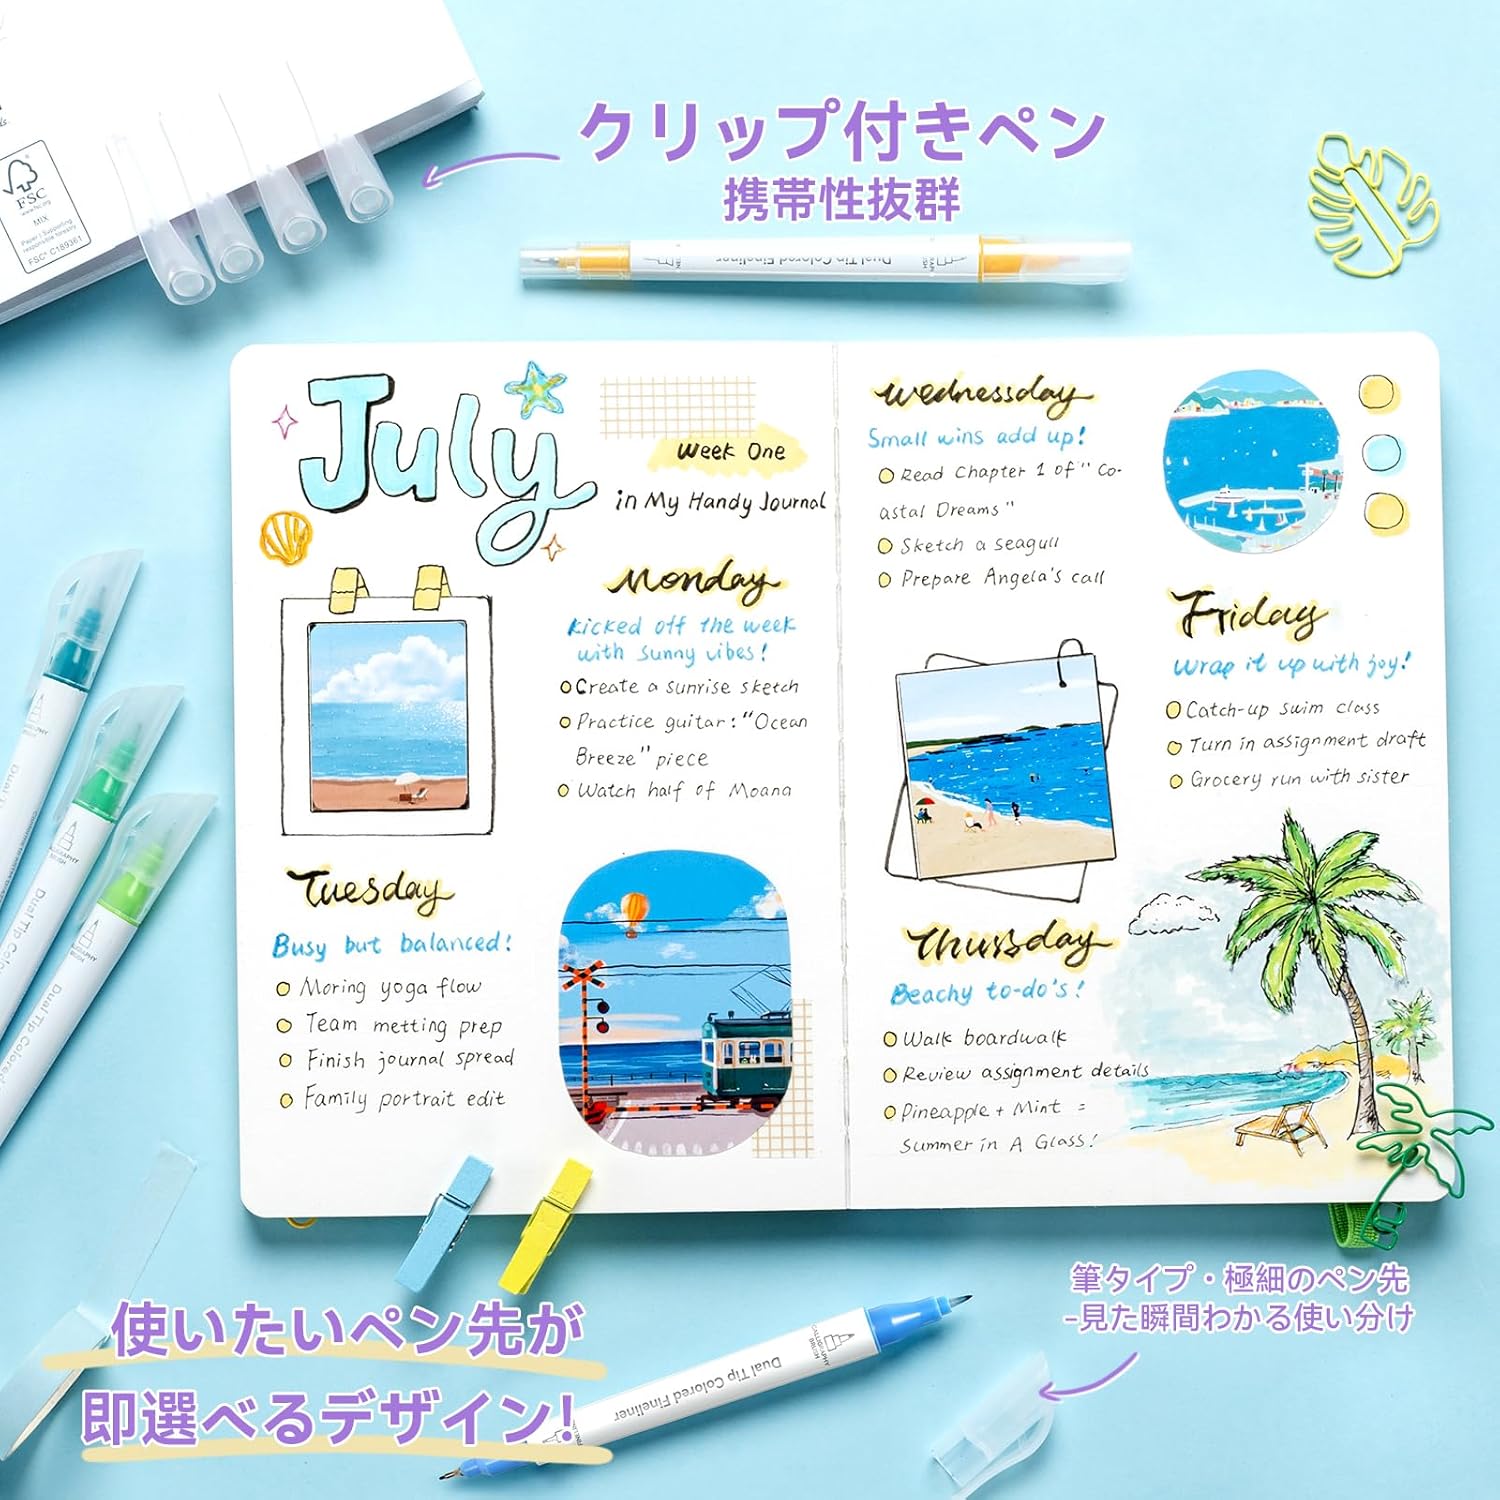 クリップ付きペン
携帯性抜群
FSC
www.fsc.org
MIX
Paper | Supporting
responsible forestry
FSC® C189361
Dual Tip Colored Fineliner
July
Week One
in My Handy Journal
Monday
Kicked off the week
with sunny vibes!
Create a sunrise sketch
Practice guitar: "Ocean
Breeze" piece
Watch half of Moana
Tuesday
Busy but balanced!
Moring yoga flow
Team metting prep
Finish journal spread
Family portrait edit
Wednessday
Small wins add up!
Read Chapter 1 of "Co-
astal Dreams"
Sketch a seagull
Prepare Angela's call
Thursday
Beachy to-do's!
Walk boardwalk
Review assignment details
Pineapple + Mint =
Summer in A Glass!
Friday
Wrap it up with joy!
Catch-up swim class
Turn in assignment draft
Grocery run with sister
CALLIGRAPHY
BRUSH
Dual Tip Colored
Dual Tip Colored
使いたいペン先が
即選べるデザイン!
CALLIGRAPHY
BRUSH
Dual Tip Colored Fineliner
筆タイプ・極細のペン先
-見た瞬間わかる使い分け